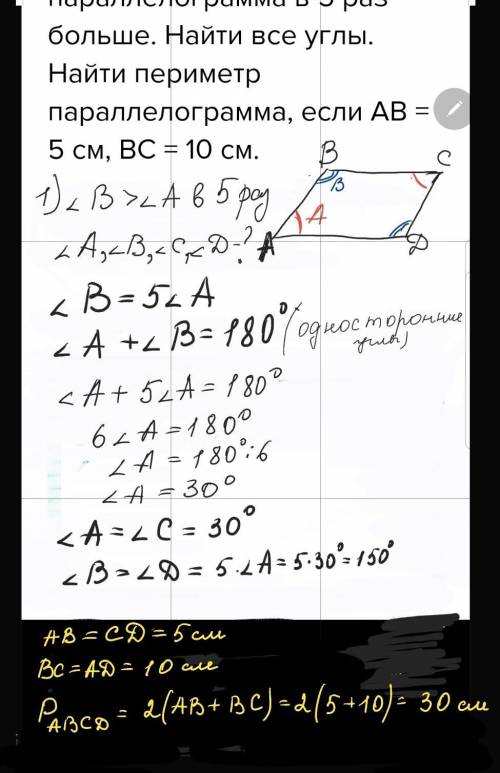 параллелограмма в 5 раз
больше. Найти все углы.
Найти периметр
параллелограмма, если AB =
5 см, BC = 10 см.
B
C
B
1) ∠B > ∠A в 5 раз
A
∠A, ∠B, ∠C, ∠D - ?
A
D
∠B = 5∠A
∠A + ∠B = 180° (односторонние
углы)
∠A + 5∠A = 180°
6∠A = 180°
∠A = 180° : 6
∠A = 30°
∠A = ∠C = 30°
∠B = ∠D = 5·∠A = 5·30° = 150°
AB = CD = 5 см
BC = AD = 10 см
P ABCD = 2(AB + BC) = 2(5+10) = 30 см